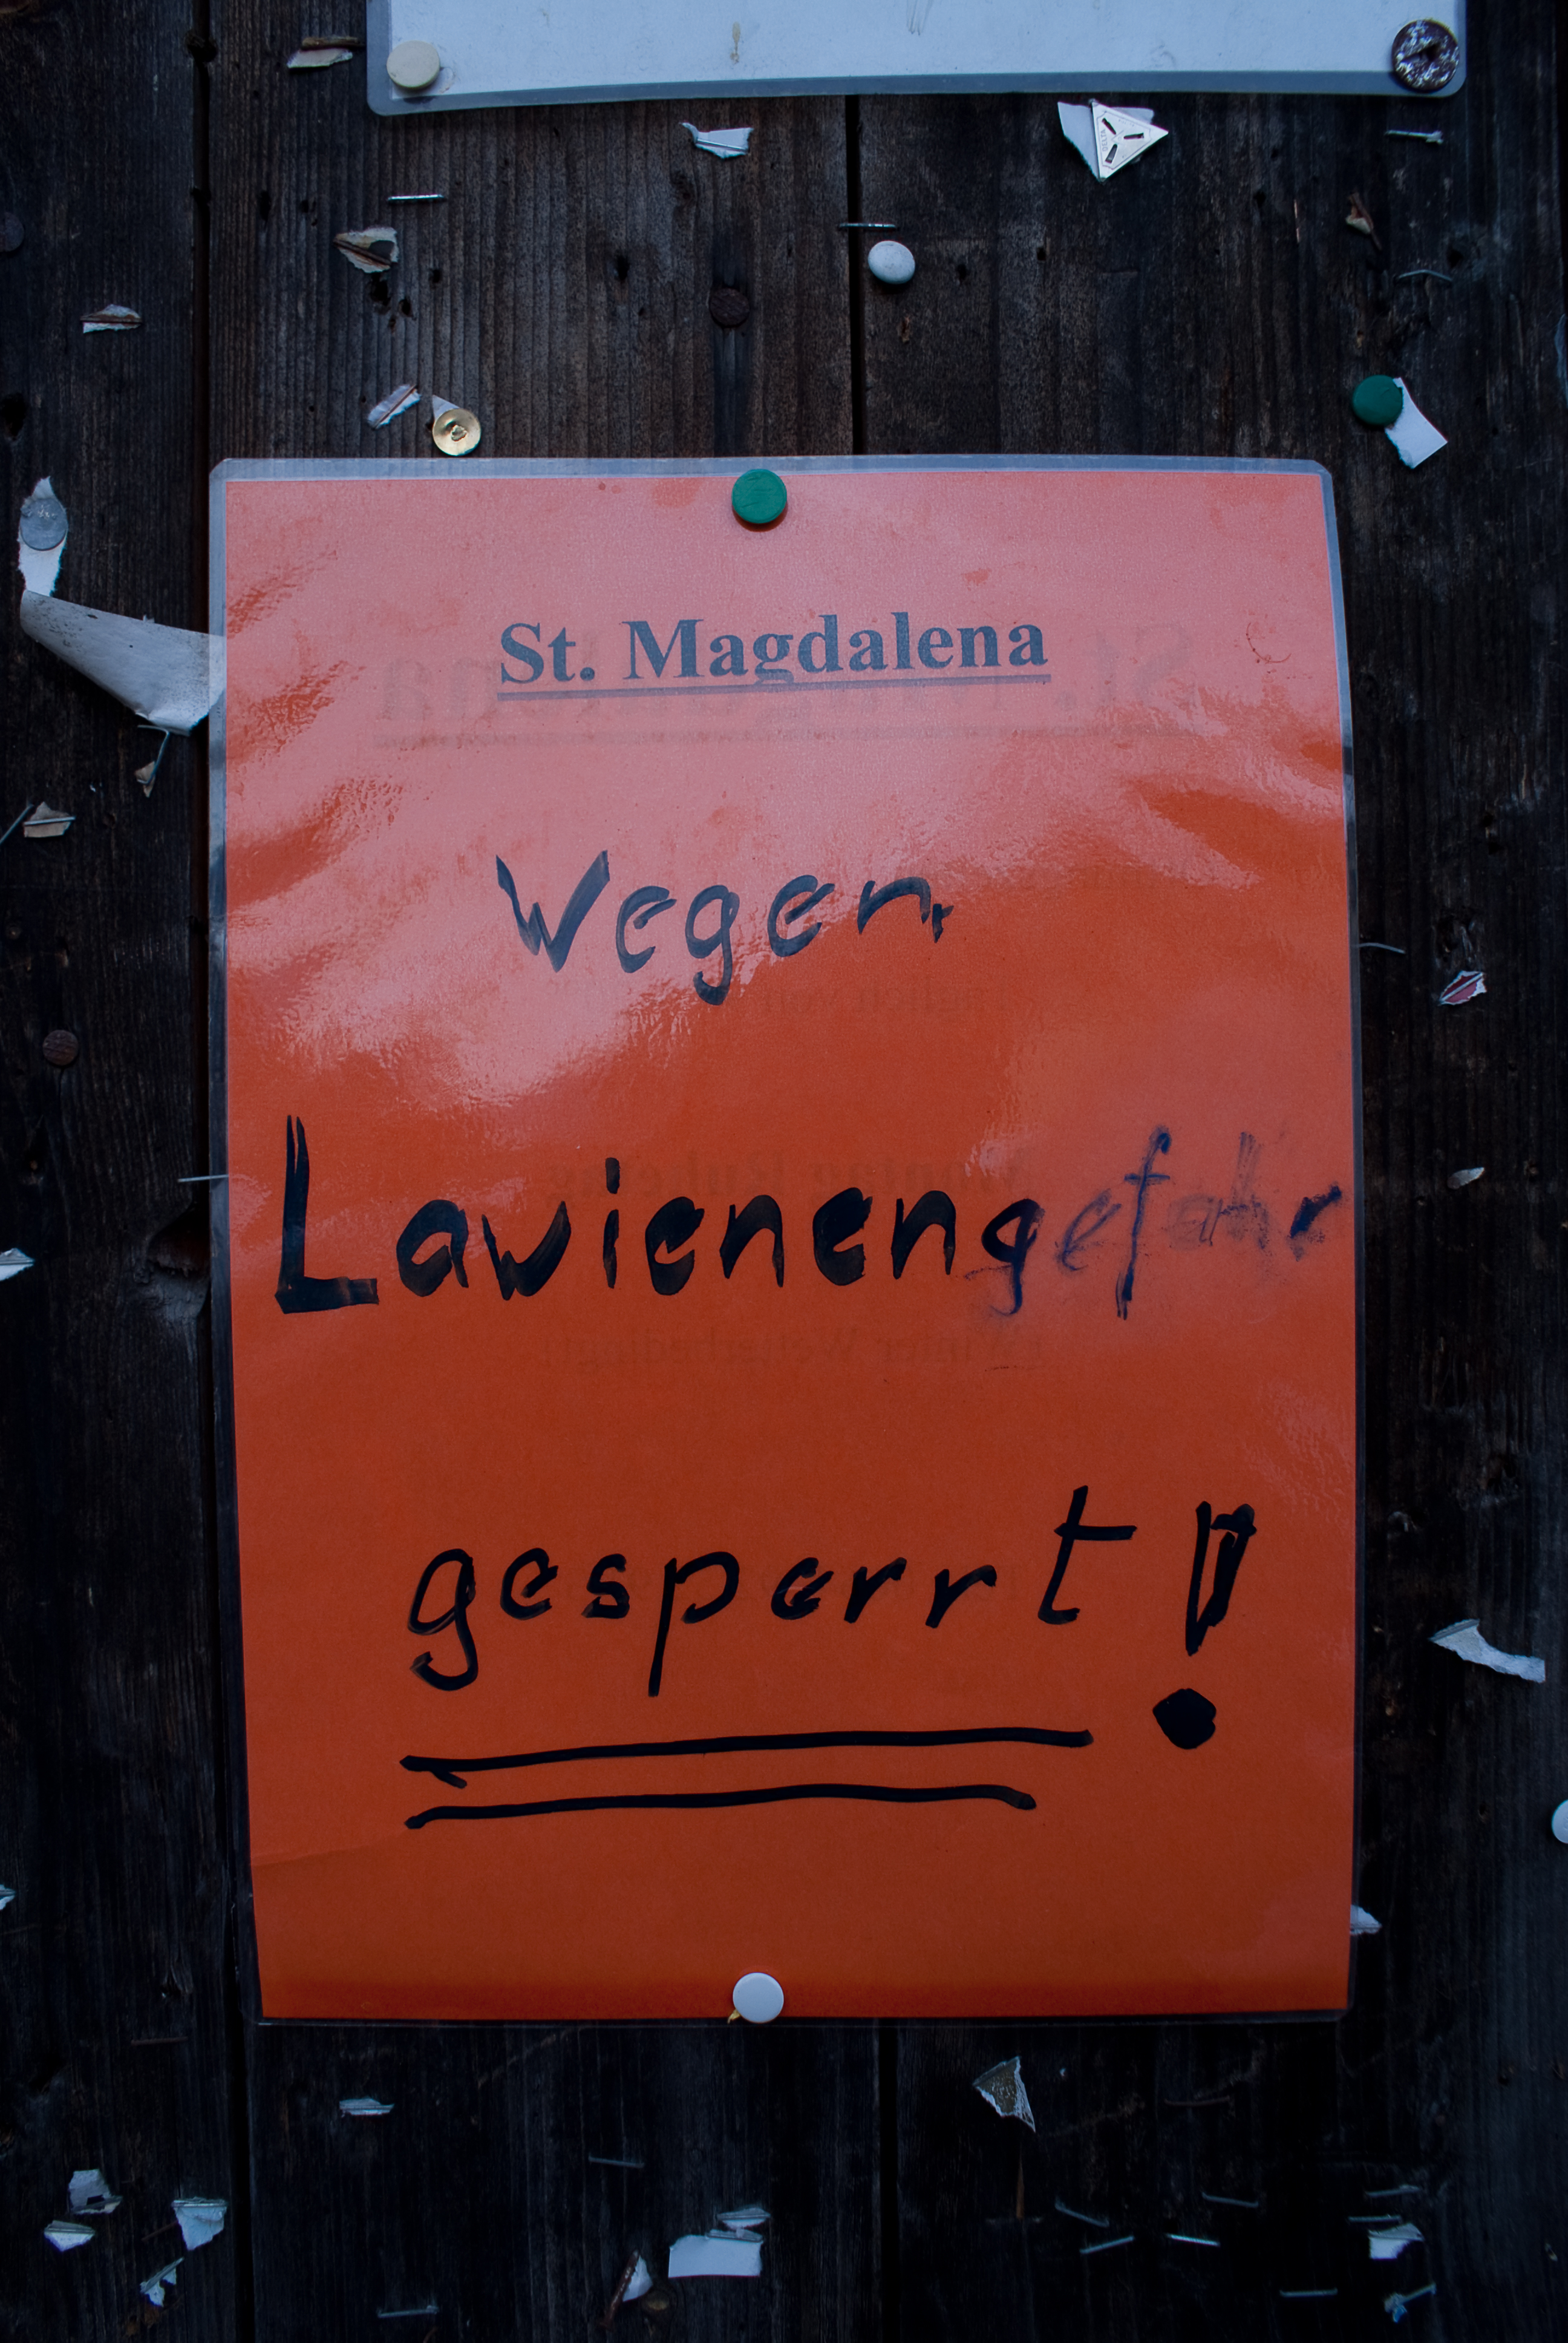 St. Magdalena
Wegen
Lawienengefahr
gesperrt!